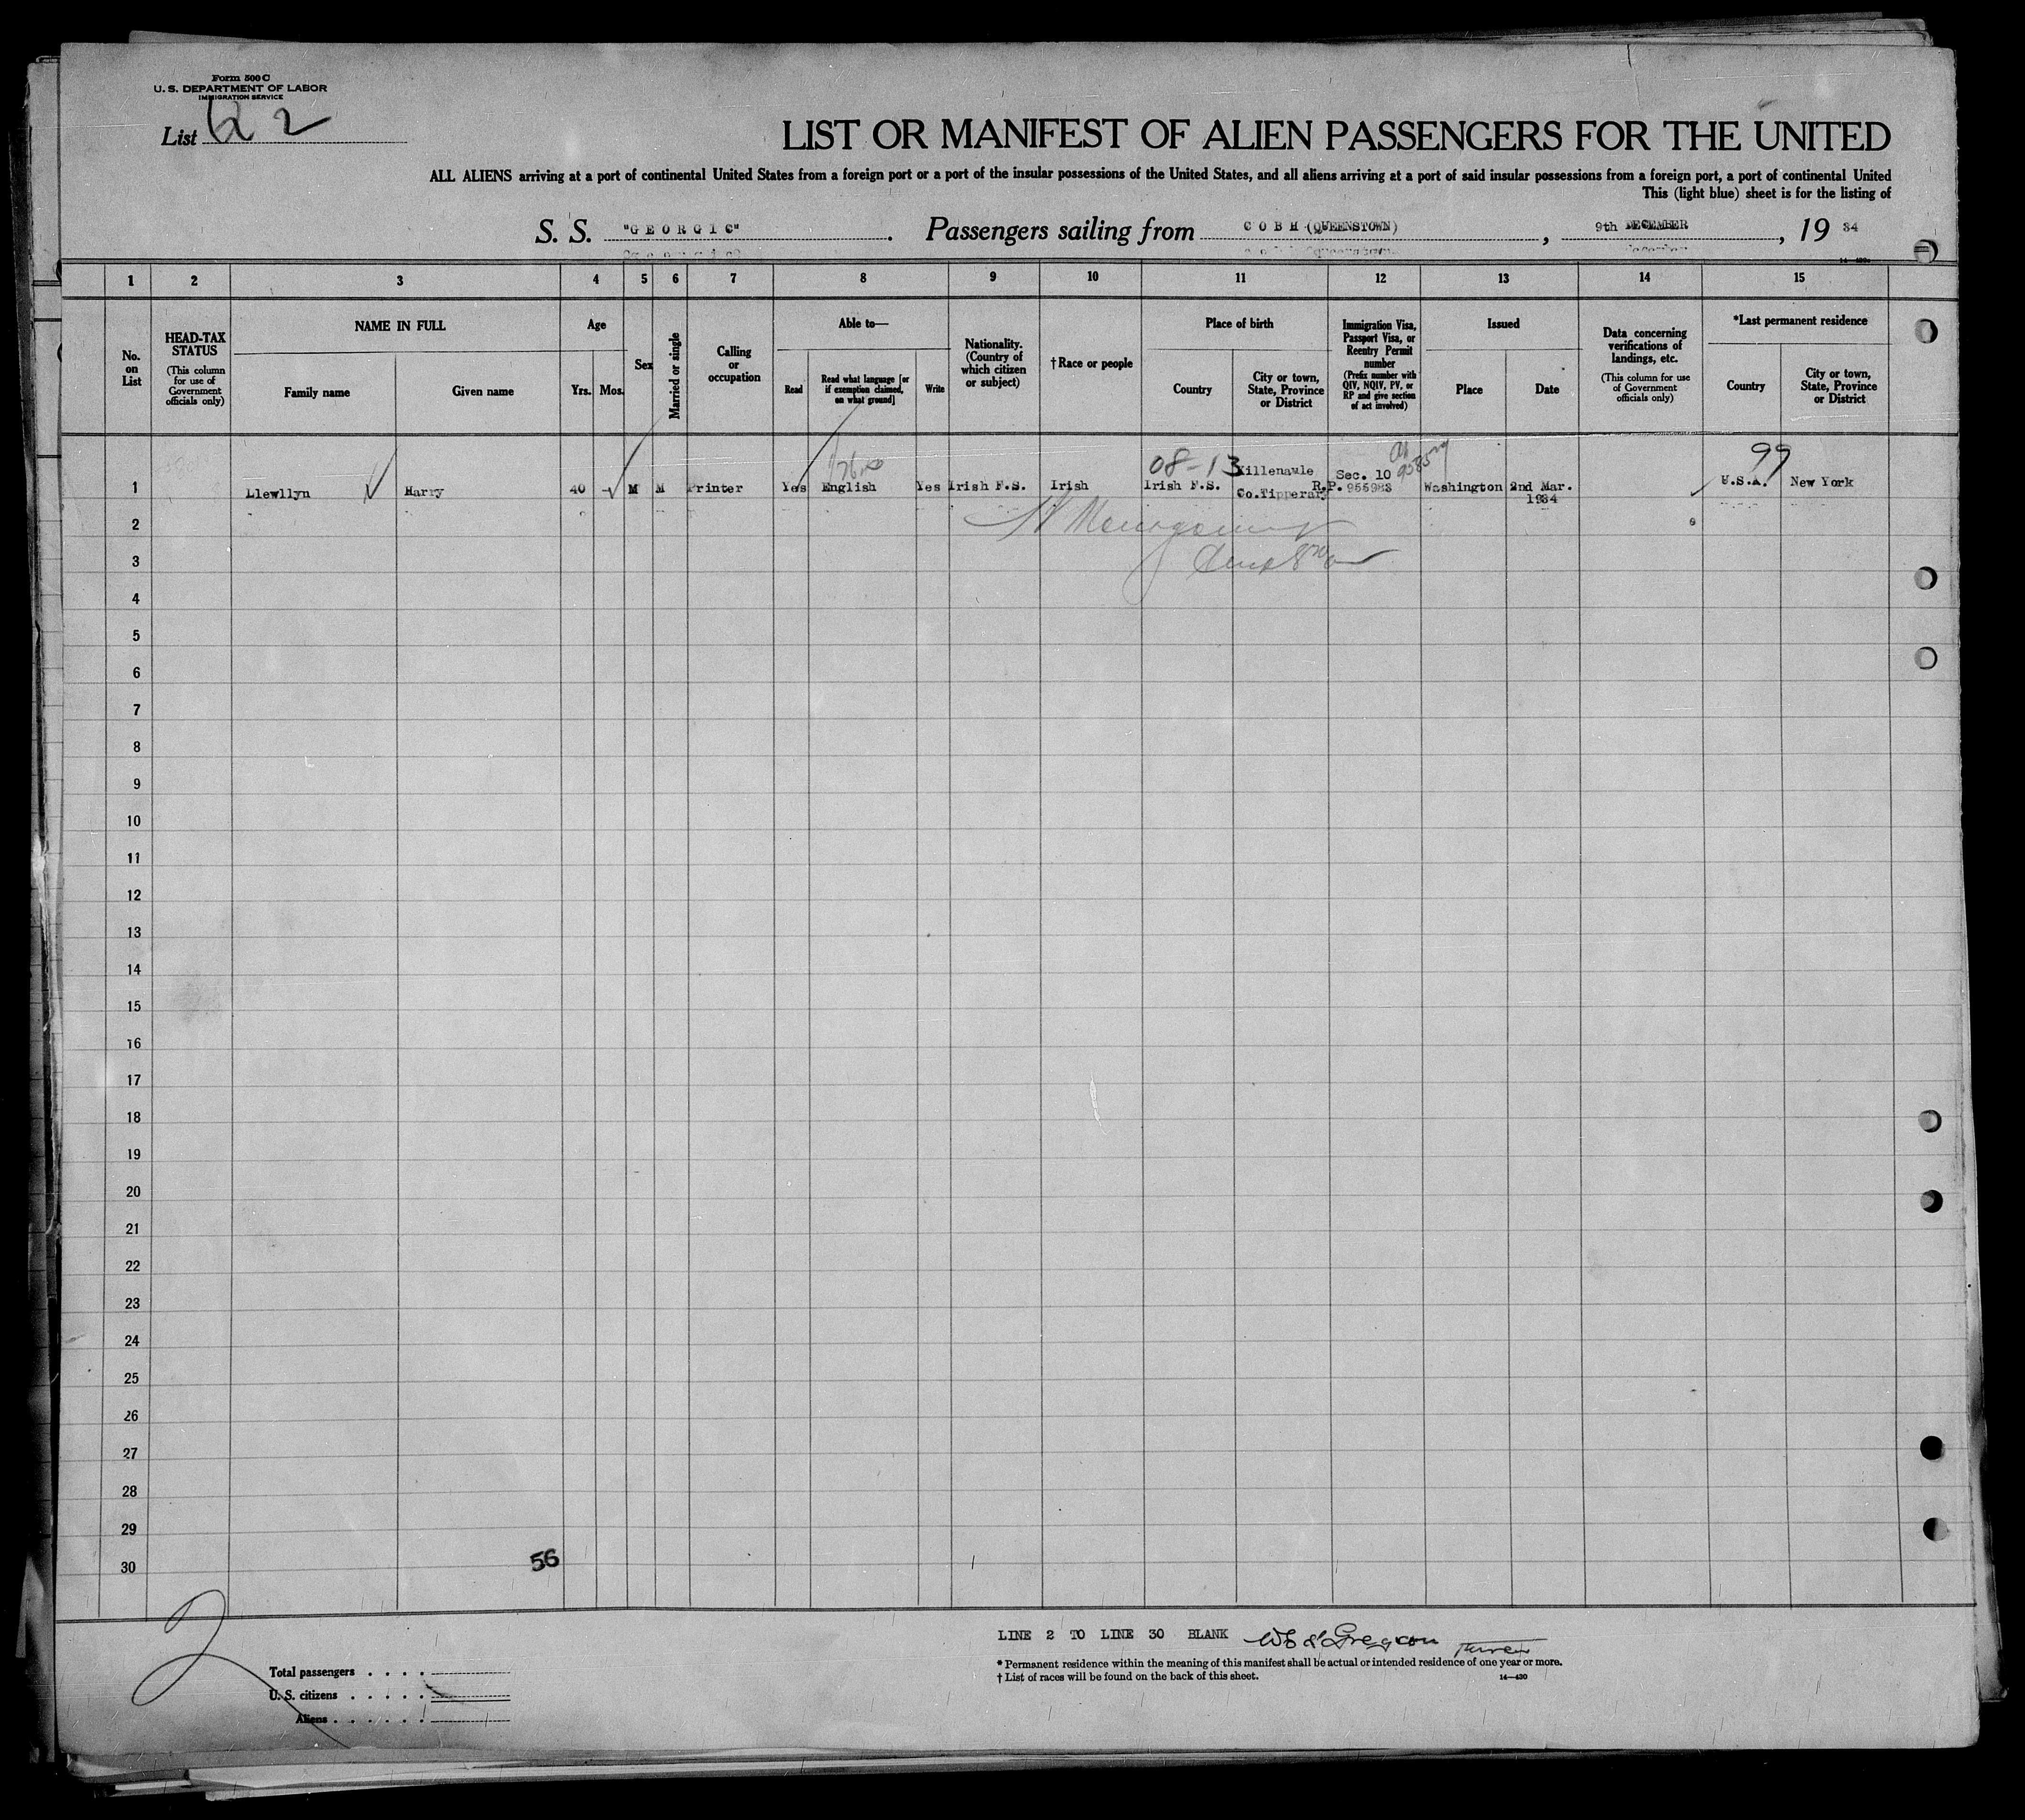 Form 500 C
U. S. DEPARTMENT OF LABOR
IMMIGRATION SERVICE
List 2
LIST OR MANIFEST OF ALIEN PASSENGERS FOR THE UNITED
ALL ALIENS arriving at a port of continental United States from a foreign port or a port of the insular possessions of the United States, and all aliens arriving at a port of said insular possessions from a foreign port, a port of continental United
This (light blue) sheet is for the listing of
S. S. "GEORGIC". Passengers sailing from COBH (QUEENSTOWN), 9th DECEMBER, 19 34
1 2 3 4 5 6 7 8 9 10 11 12 13 14 15
No. on List
HEAD-TAX STATUS
(This column for use of Government officials only)
NAME IN FULL
Family name
Given name
Age
Yrs. Mos.
Sex
Married or single
Calling or occupation
Able to—
Read
Read what language [or if exemption claimed, on what ground]
Write
Nationality. (Country of which citizen or subject)
† Race or people
Place of birth
Country
City or town, State, Province or District
Immigration Visa, Passport Visa, or Reentry Permit number
(Prefix number with QIV, NQIV, PV, or RP and give section of act involved)
Issued
Place
Date
Data concerning verifications of landings, etc.
(This column for use of Government officials only)
*Last permanent residence
Country
City or town, State, Province or District
08-13
99
1 Llewllyn Harry 40 M M Printer Yes English Yes Irish F.S. Irish Irish F.S. Killenaule Co.Tipperary Sec. 10 R.P. 955983 Washington 2nd Mar. 1934 U.S.A. New York
2
3
4
5
6
7
8
9
10
11
12
13
14
15
16
17
18
19
20
21
22
23
24
25
26
27
28
29
30
56
LINE 2 TO LINE 30 BLANK
* Permanent residence within the meaning of this manifest shall be actual or intended residence of one year or more.
† List of races will be found on the back of this sheet.
14—430
Total passengers
U. S. citizens
Aliens